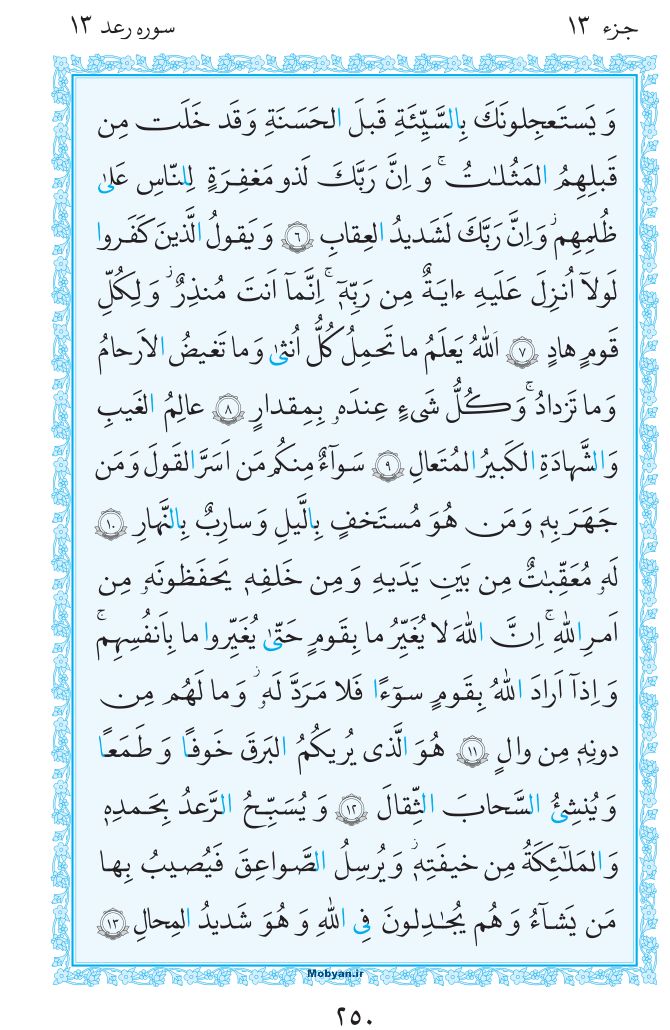 جزء ۱۳
سوره رعد ۱۳
وَ يَستَعجِلونَكَ بِالسَّيِّئَةِ قَبلَ الحَسَنَةِ وَ قَد خَلَت مِن
قَبلِهِمُ المَثُلـٰتُ ۚ وَ اِنَّ رَبَّكَ لَذو مَغفِرَةٍ لِلنّاسِ عَلىٰ
ظُلمِهِم ۖ وَ اِنَّ رَبَّكَ لَشَديدُ العِقابِ ۶ وَ يَقولُ الَّذينَ كَفَروا
لَولاۤ اُنزِلَ عَلَيهِ ءايَةٌ مِن رَبِّهٖۤ ۚ اِنَّماۤ اَنتَ مُنذِرٌ ۖ وَ لِكُلِّ
قَومٍ هادٍ ۷ اَللّٰهُ يَعلَمُ ما تَحمِلُ كُلُّ اُنثىٰ وَ ما تَغيضُ الاَرحامُ
وَ ما تَزدادُ ۚ وَ كُلُّ شَىءٍ عِندَهٗ بِمِقدارٍ ۸ عالِمُ الغَيبِ
وَ الشَّهادَةِ الكَبيرُ المُتَعالِ ۹ سَوآءٌ مِنكُم مَن اَسَرَّ القَولَ وَ مَن
جَهَرَ بِهٖ وَ مَن هُوَ مُستَخفٍ بِالَّيلِ وَ سارِبٌ بِالنَّهارِ ۱۰
لَهٗ مُعَقِّبـٰتٌ مِن بَينِ يَدَيهِ وَ مِن خَلفِهٖ يَحفَظونَهٗ مِن
اَمرِ اللّٰهِ ۚ اِنَّ اللّٰهَ لا يُغَيِّرُ ما بِقَومٍ حَتّىٰ يُغَيِّروا ما بِاَنفُسِهِم ۗ
وَ اِذاۤ اَرادَ اللّٰهُ بِقَومٍ سوۤءًا فَلا مَرَدَّ لَهٗ ۚ وَ ما لَهُم مِن
دونِهٖ مِن والٍ ۱۱ هُوَ الَّذى يُريكُمُ البَرقَ خَوفًا وَ طَمَعًا
وَ يُنشِئُ السَّحابَ الثِّقالَ ۱۲ وَ يُسَبِّحُ الرَّعدُ بِحَمدِهٖ
وَ المَلـٰۤئِكَةُ مِن خيفَتِهٖ وَ يُرسِلُ الصَّواعِقَ فَيُصيبُ بِها
مَن يَشاۤءُ وَ هُم يُجـٰدِلونَ فِى اللّٰهِ وَ هُوَ شَديدُ المِحالِ ۱۳
Mobyan.ir
۲۵۰